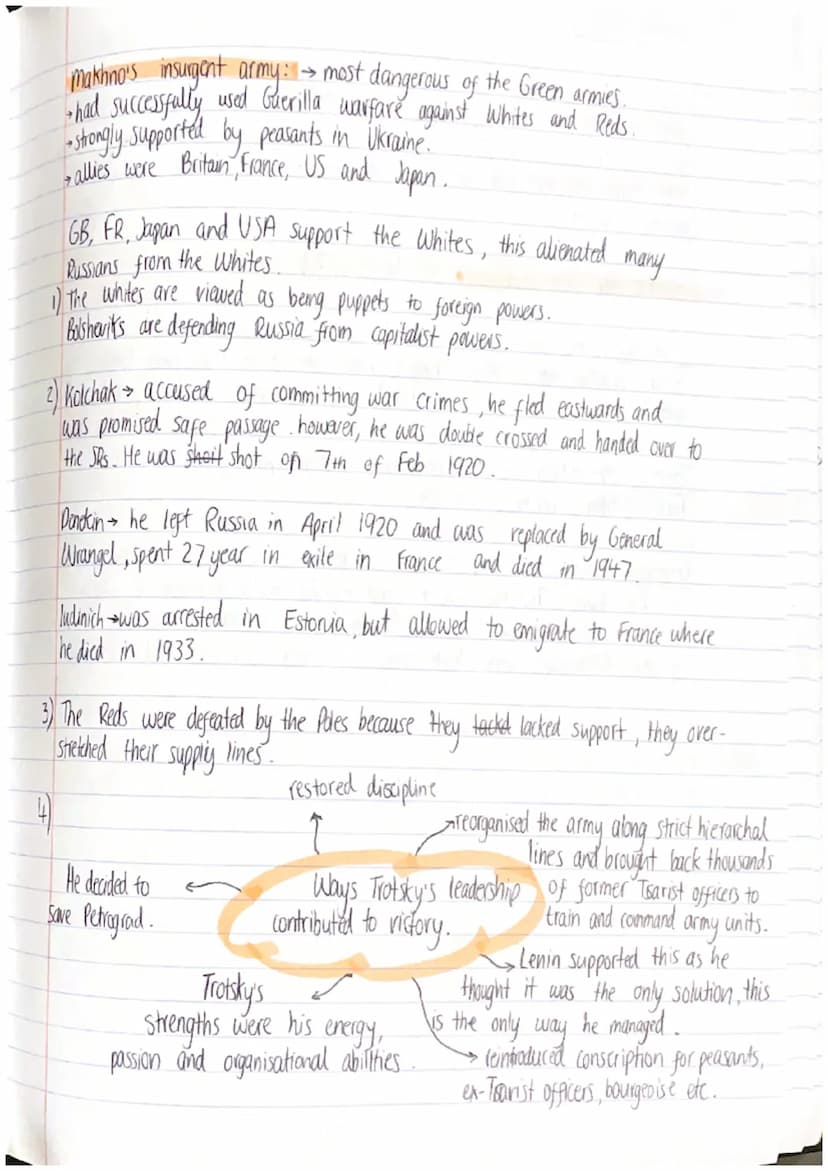 Makhno's insurgent army: → most dangerous of the Green armies.
→ had successfully used Guerilla warfare against Whites and Reds.
→ strongly supported by peasants in Ukraine.
→ allies were Britain, France, US and Japan.
GB, FR, Japan and USA support the Whites, this alienated many
Russians from the Whites.
1) The Whites are viewed as being puppets to foreign powers.
Bolsheviks are defending Russia from capitalist powers.
2) Kolchak → accused of committing war crimes, he fled eastwards and
was promised safe passage. however, he was double crossed and handed over to
the SRs. He was shott shot on 7th of Feb 1920.
Denikin → he left Russia in April 1920 and was replaced by General
Wrangel, spent 27 year in exile in France and died in 1947.
Iudinich → was arrested in Estonia, but allowed to emigrate to France where
he died in 1933.
3) The Reds were defeated by the Poles because they lackd lacked support, they over-
stretched their supply lines.
4)
restored discipline
→ reorganised the army along strict hierarchal
lines and brought back thousands
of former Tsarist officers to
train and command army units.
He decided to
save Petrograd.
Ways Trotsky's leadership
contributed to victory.
→ Lenin supported this as he
thought it was the only solution, this
is the only way he managed.
Trotsky's
strengths were his energy,
passion and organisational abilities.
→ reintroduced conscription for peasants,
ex-Tsarist officers, bourgeoise etc.